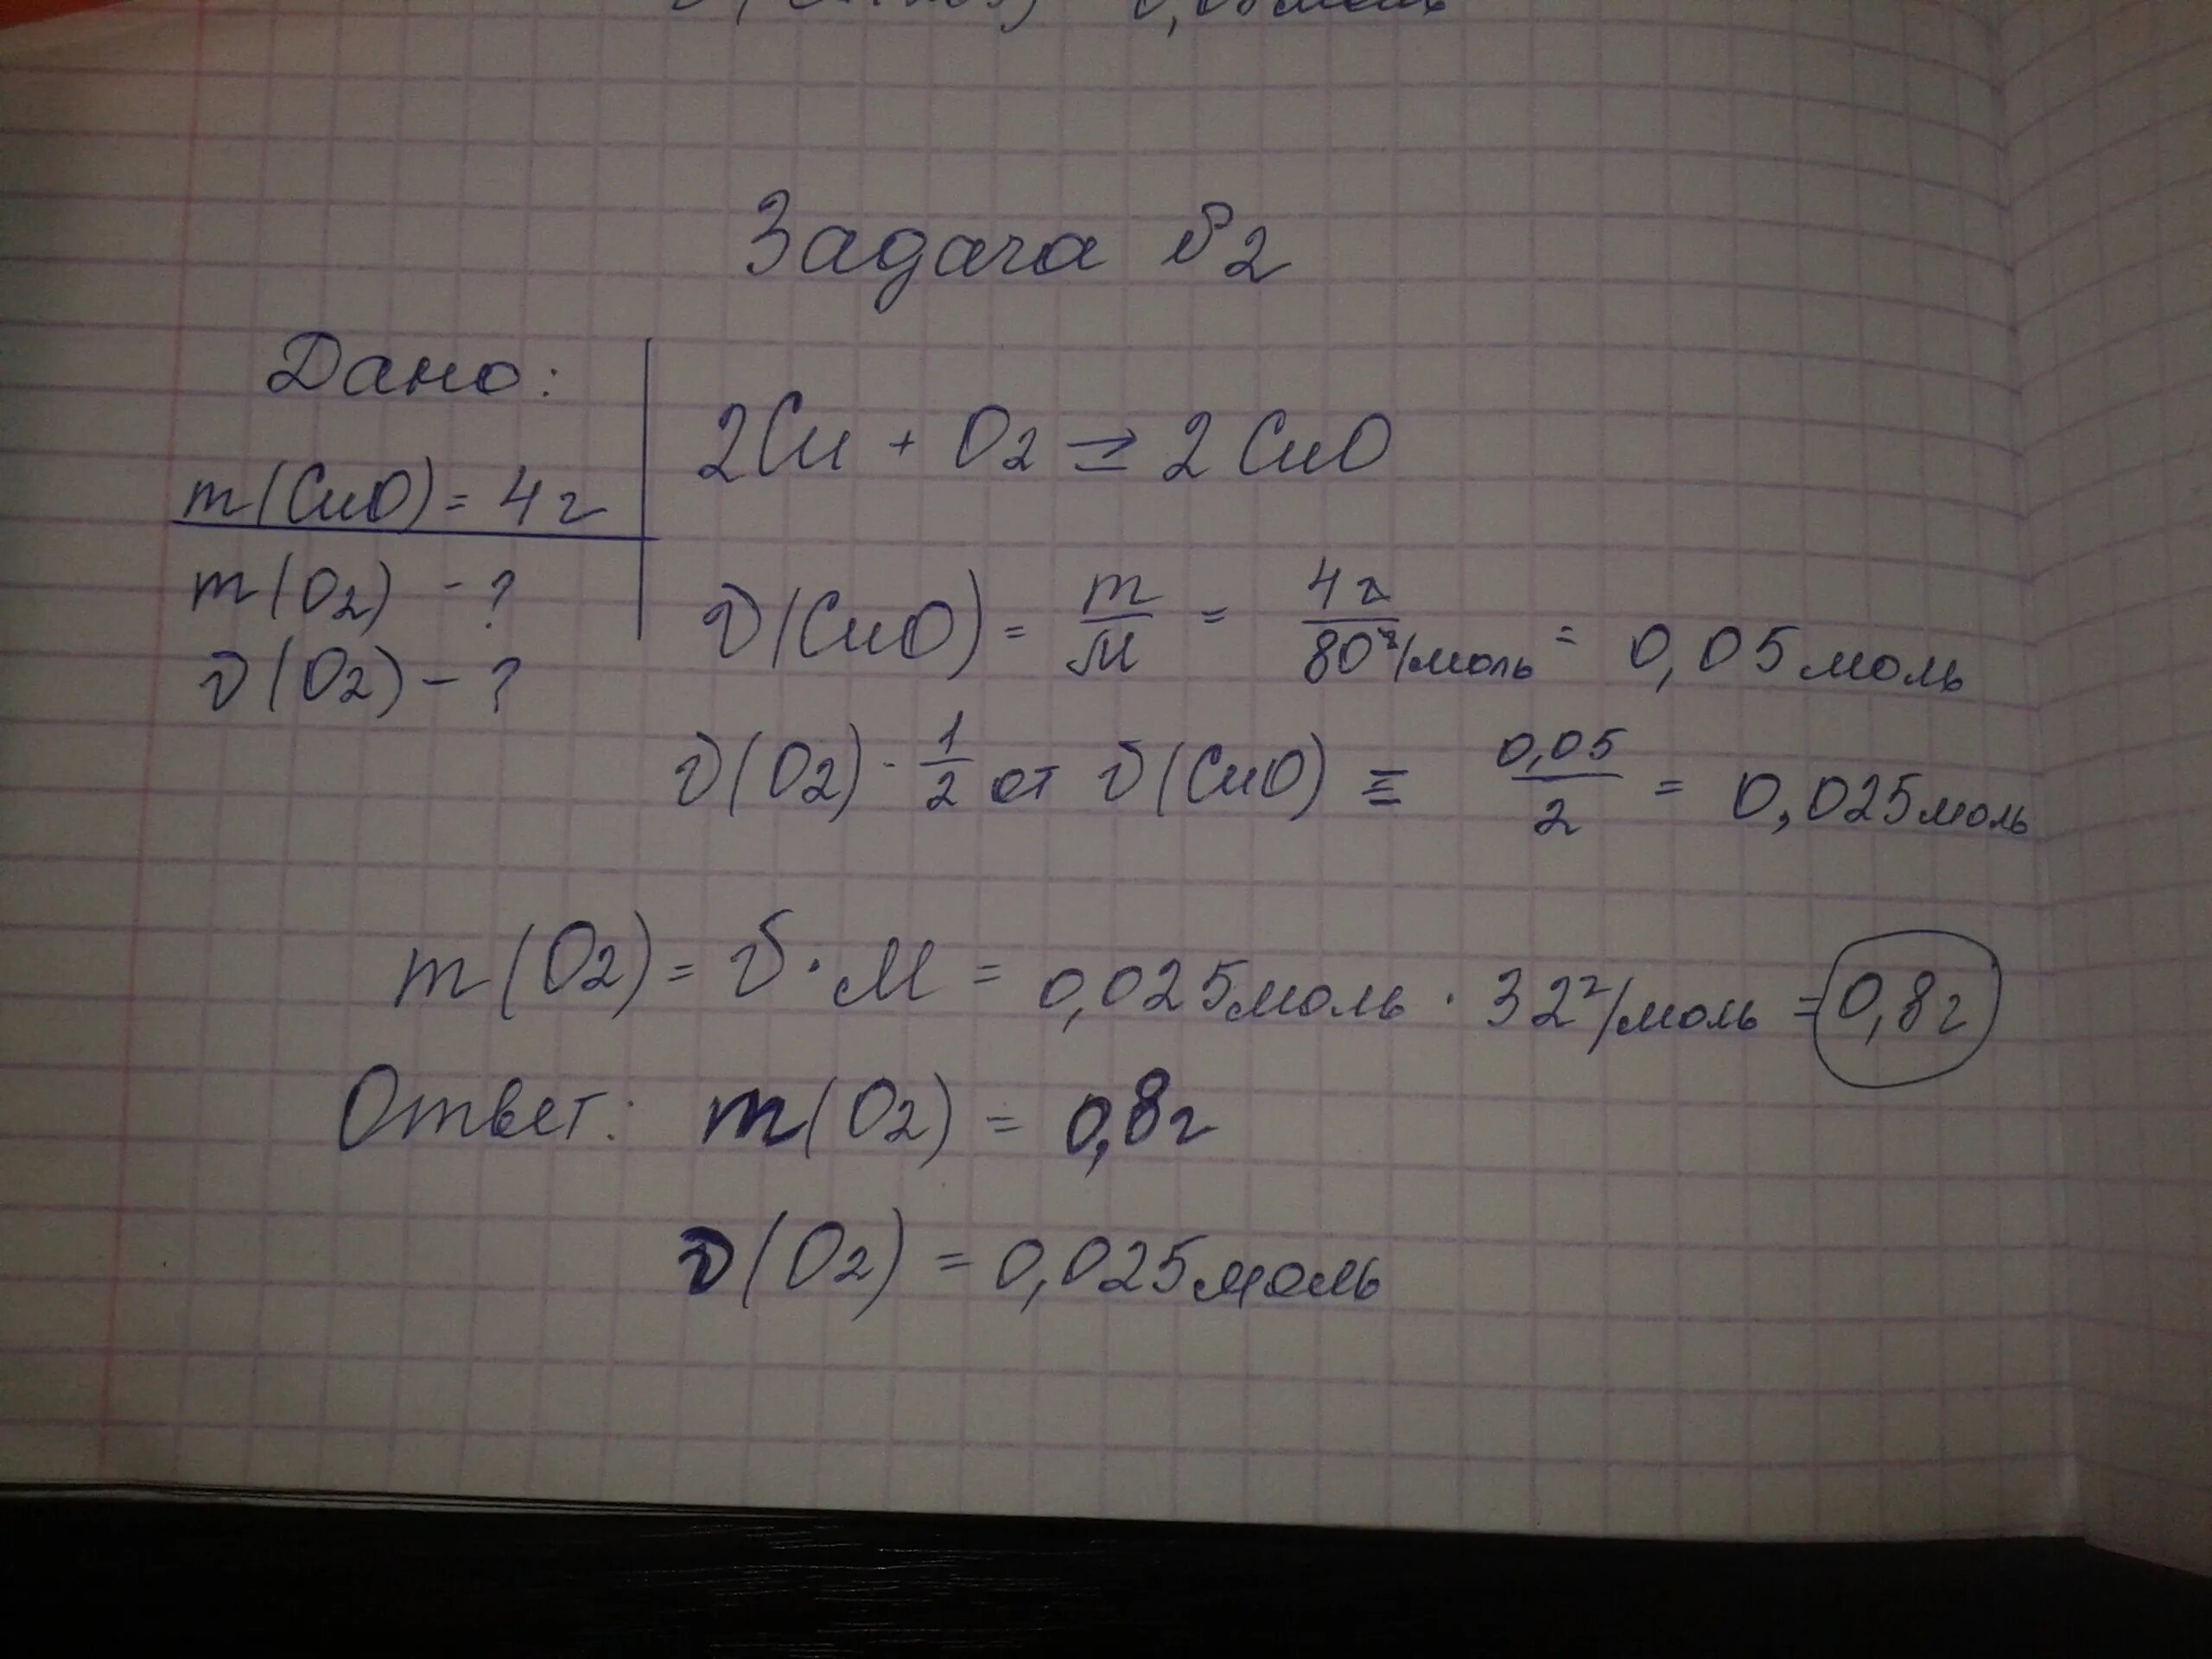 Задача №2
Дано:
m(CuO) = 4г
m(O2) - ?
ν(O2) - ?
2Cu + O2 = 2CuO
ν(CuO) = m/M = 4г/80г/моль = 0,05моль
ν(O2) - 1/2 от ν(CuO) = 0,05/2 = 0,025моль
m(O2) = ν · M = 0,025моль · 32г/моль = 0,8г
Ответ: m(O2) = 0,8г
ν(O2) = 0,025моль